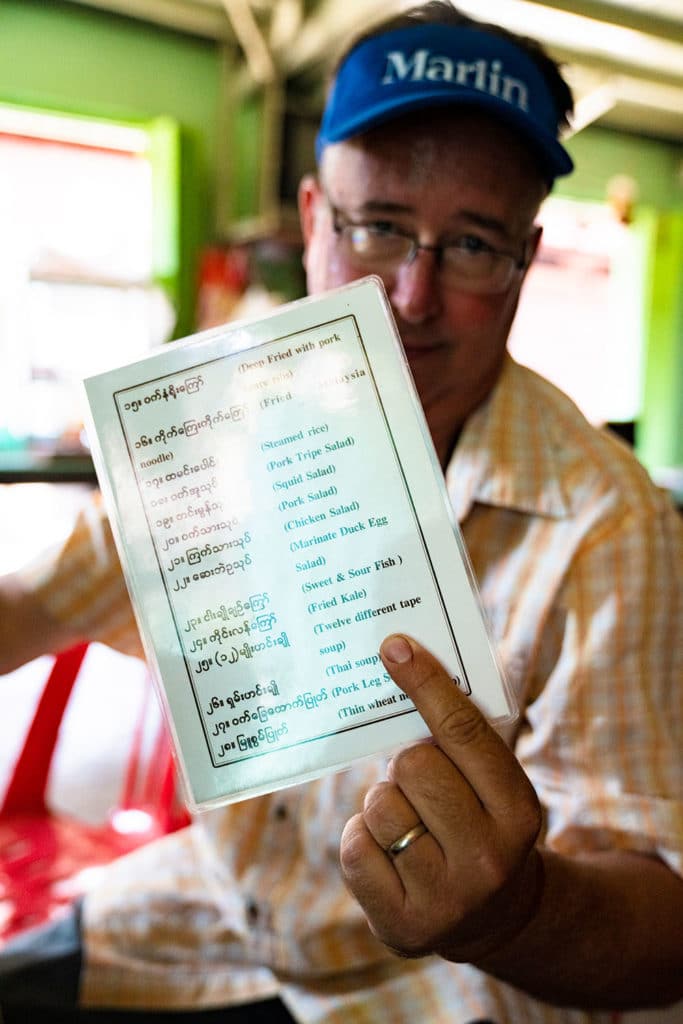 Marlin
၁၅။ ဝက်နံရိုးကြော် (Deep Fried with pork
ribs)
၁၆။ ကိုက်ကြေးကိုက်ကြော် (Fried Malaysia
noodle)
၁၇။ ထမင်းပေါင် (Steamed rice)
၁၈။ ဝက်အူသုပ် (Pork Tripe Salad)
၁၉။ (Squid Salad)
၂၀။ ဝက်သားသုပ် (Pork Salad)
၂၁။ ကြက်သားသုပ် (Chicken Salad)
၂၂။ ဆေးဘဲဥသုပ် (Marinate Duck Egg
Salad)
၂၃။ ငါးချိုချဉ်ကြော် (Sweet & Sour Fish )
၂၄။ ကိုင်းလန်ကြော် (Fried Kale)
၂၅။ (၁၂)မျိုးဟင်းချို (Twelve different tape
soup)
၂၆။ ရှမ်းဟင်းချို (Thai soup)
၂၇။ ဝက်ခြေထောက်ပြုတ် (Pork Leg
၂၈။ မြူစွမ်ပြုတ် (Thin wheat